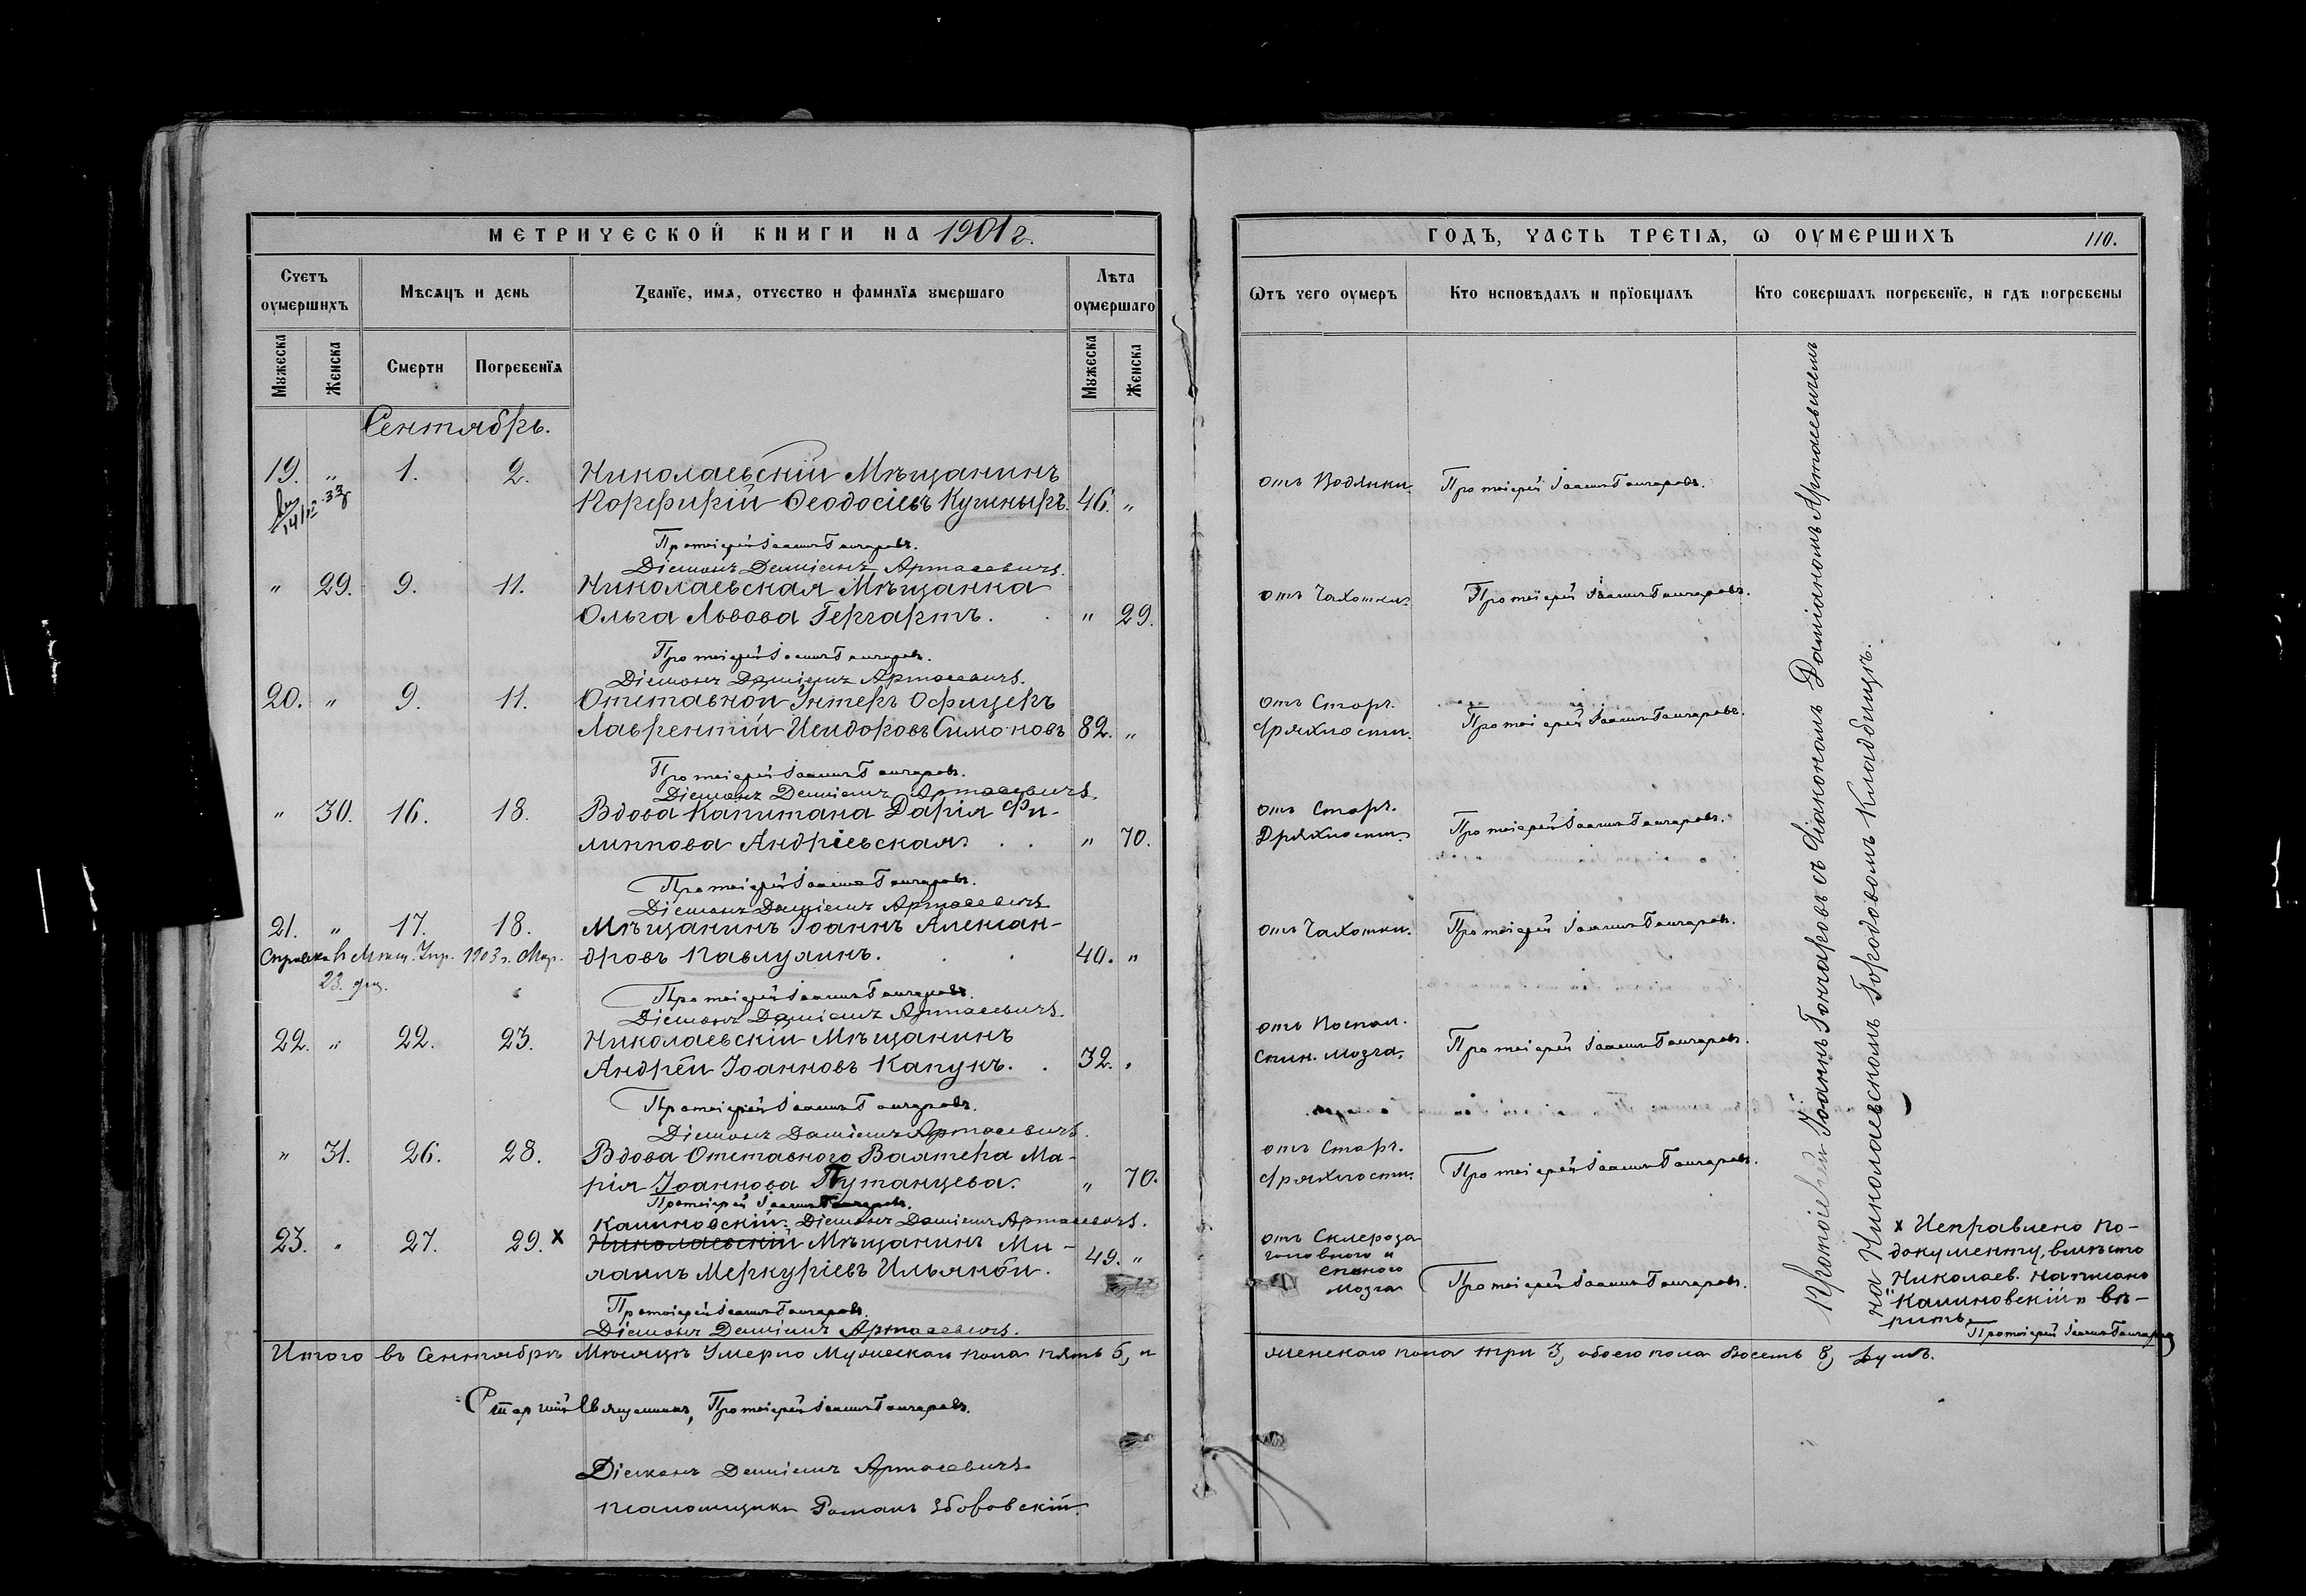 МЕТРИЧЕСКОЙ КНИГИ НА 1901 г.
ГОДЪ, ЧАСТЬ ТРЕТІЯ, Ѡ ОУМЕРШИХЪ 110.
Счетъ оумершихъ
Мѣсяцъ и день
Званїе, имя, отчество и фамилїя умершаго
Лѣта оумершаго
Ѿтъ чего оумеръ
Кто исповѣдалъ и прїобщалъ
Кто совершалъ погребенїе, и гдѣ погребены
Мужеска
Женска
Смерти
Погребенїя
Мужеска
Женска
Сентябрь.
19. " 1. 2. Николаевскій Мѣщанинъ
Порфирій Ѳеодосіевъ Кушныръ. 46. "
отъ Водянки.
Протоіерей Іоаннъ Гончаровъ.
Протоіерей Іоаннъ Гончаровъ.
Діаконъ Даміанъ Артасевичъ.
" 29. 9. 11. Николаевская Мѣщанка
Ольга Львова Гергартъ. " 29.
отъ Чахотки.
Протоіерей Іоаннъ Гончаровъ.
Протоіерей Іоаннъ Гончаровъ.
Діаконъ Даміанъ Артасевичъ.
20. " 9. 11. Отставной Унтеръ Офицеръ
Лаврентій Исидоровъ Симоновъ 82. "
отъ Старч.
дряхлости.
Протоіерей Іоаннъ Гончаровъ.
Протоіерей Іоаннъ Гончаровъ.
Діаконъ Даміанъ Артасевичъ.
" 30. 16. 18. Вдова Капитана Дарія Фи-
липпова Андріевская. " 70.
отъ Старч.
Дряхлости.
Протоіерей Іоаннъ Гончаровъ.
Протоіерей Іоаннъ Гончаровъ.
Діаконъ Даміанъ Артасевичъ.
21. " 17. 18. Мѣщанинъ Іоаннъ Алексан-
дровъ Павлушинъ. 40. "
Справка в Мѣщ. Упр. 1903 г. Мар.
23. дня.
отъ Чахотки.
Протоіерей Іоаннъ Гончаровъ.
Протоіерей Іоаннъ Гончаровъ.
Діаконъ Даміанъ Артасевичъ.
22. " 22. 23. Николаевскій Мѣщанинъ
Андрей Іоанновъ Капукъ. 32. "
отъ Воспал.
спин. мозга.
Протоіерей Іоаннъ Гончаровъ.
Протоіерей Іоаннъ Гончаровъ.
Діаконъ Даміанъ Артасевичъ.
" 31. 26. 28. Вдова Отставного Вахтера Ма-
рія Іоаннова Путанцева. " 70.
отъ Старч.
дряхлости.
Протоіерей Іоаннъ Гончаровъ.
Протоіерей Іоаннъ Гончаровъ.
Калиновскій. Діаконъ Даміанъ Артасевичъ.
23. " 27. 29. х Николаевскій Мѣщанинъ Ми-
хаилъ Меркуріевъ Ильяной. 49. "
отъ Склероза
головного и
спиного
мозга
Протоіерей Іоаннъ Гончаровъ.
Протоіерей Іоаннъ Гончаровъ.
Діаконъ Даміанъ Артасевичъ.
Протоіерей Іоаннъ Гончаровъ съ діакономъ Даміаномъ Артасевичемъ
на Николаевскомъ Городовомъ Кладбищѣ.
х Исправлено по-
документу, вмѣсто
Николаев. написано
"Калиновскій" вѣ-
рить.
Протоіерей Іоаннъ Гончаровъ
Итого въ Сентябрѣ Мѣсяцѣ Умерло Мужескаго пола пять 5, и
женскаго пола три 3, обоего пола восемь 8, душъ.
Старшій Священникъ, Протоіерей Іоаннъ Гончаровъ.
Діаконъ Даміанъ Артасевичъ
Псаломщикъ Романъ Зборовскій.